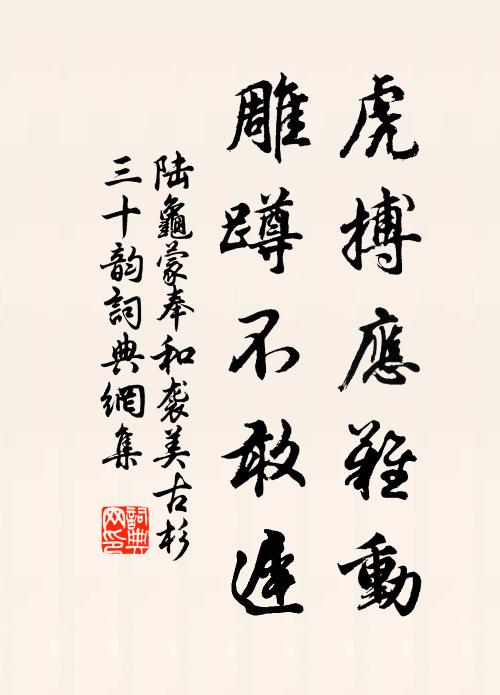 虎搏應難動
雕蹲不敢遲
陆龜蒙奉和袭美古杉
三十韵詞典網集
詞典
网印